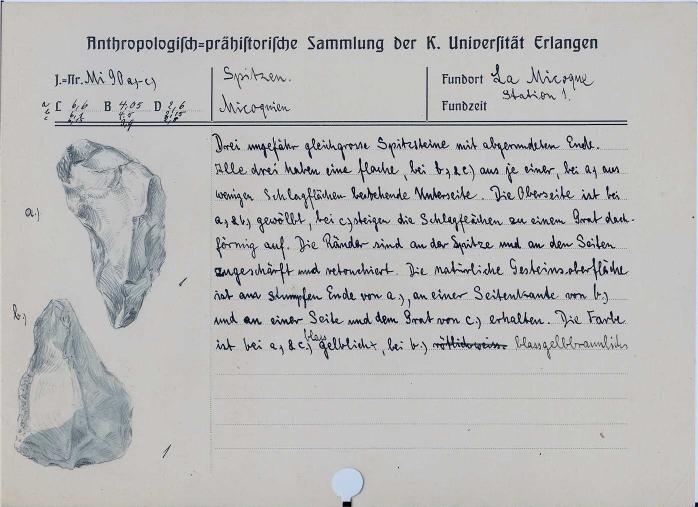 Anthropologisch=prähistorische Sammlung der K. Universität Erlangen
J.=Nr. Mi 90 a,-c,
Spitzen.
Fundort La Micoque
Station 1.
a L 6,6 B 4,05 D 2,6
b
c
Micoquien
Fundzeit
Drei ungefähr gleichgrosse Spitzsteine mit abgerundeten Ende.
Alle drei haben eine flache, bei b, & c, aus je einer, bei a, aus
wenigen Schlagflächen bestehende Unterseite. Die Oberseite ist bei
a, & b, gewölbt, bei c, steigen die Schlagflächen zu einem Grat dach-
förmig auf. Die Ränder sind an der Spitze und an den Seiten
zugeschärft und retouchiert. Die natürliche Gesteinsoberfläche
ist am stumpfen Ende von a, an einer Seitenkante von b,
und an einer Seite und dem Grat von c, erhalten. Die Farbe
ist bei a, & c, blass gelblich, bei b, rötlichweiss. blassgelbbraunlich
a.)
1
b.)
1